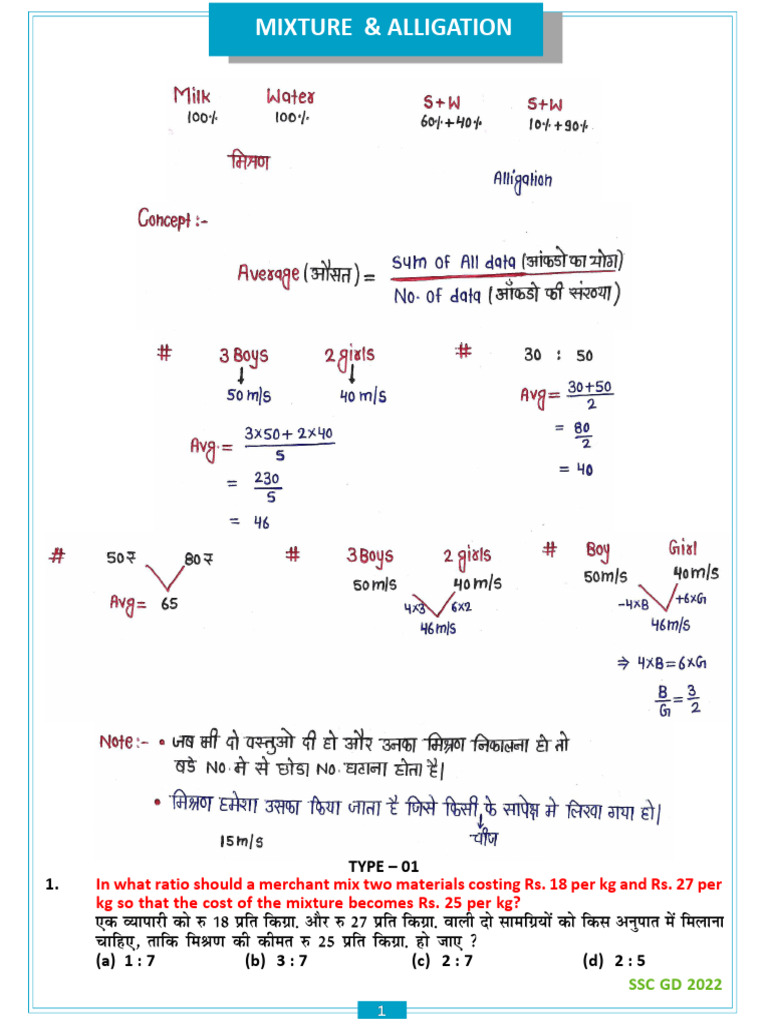 MIXTURE & ALLIGATION
Milk Water S+W S+W
100% 100% 60%+40% 10%+90%
मिश्रण
Alligation
Concept :-
Average (औसत) = Sum of All data (आंकडो का योग)
No. of data (आँकडो की संख्या)
# 3 Boys 2 girls # 30 : 50
50 m/s 40 m/s Avg = 30+50
2
Avg. = 3×50+2×40 = 80
5 2
= 230 = 40
5
= 46
# 50₹ 80₹ # 3 Boys 2 girls # Boy Girl
50 m/s 40 m/s 50 m/s 40 m/s
Avg = 65 4×3 6×2 -4×B +6×G
46 m/s 46 m/s
⇒ 4×B = 6×G
B = 3
G 2
Note:- • जब भी दो वस्तुओ दी हो और उनका मिश्रण निकालना हो तो
बडे No. मे से छोडा No. घटाना होता है|
• मिश्रण हमेशा उसका किया जाता है जिसे किसी के सापेक्ष मे लिखा गया हो|
15 m/s चीज
TYPE – 01
1. In what ratio should a merchant mix two materials costing Rs. 18 per kg and Rs. 27 per
kg so that the cost of the mixture becomes Rs. 25 per kg?
एक व्यापारी को रु 18 प्रति किग्रा. और रु 27 प्रति किग्रा. वाली दो सामग्रियों को किस अनुपात में मिलाना
चाहिए, ताकि मिश्रण की कीमत रु 25 प्रति किग्रा. हो जाए ?
(a) 1 : 7 (b) 3 : 7 (c) 2 : 7 (d) 2 : 5
SSC GD 2022
1